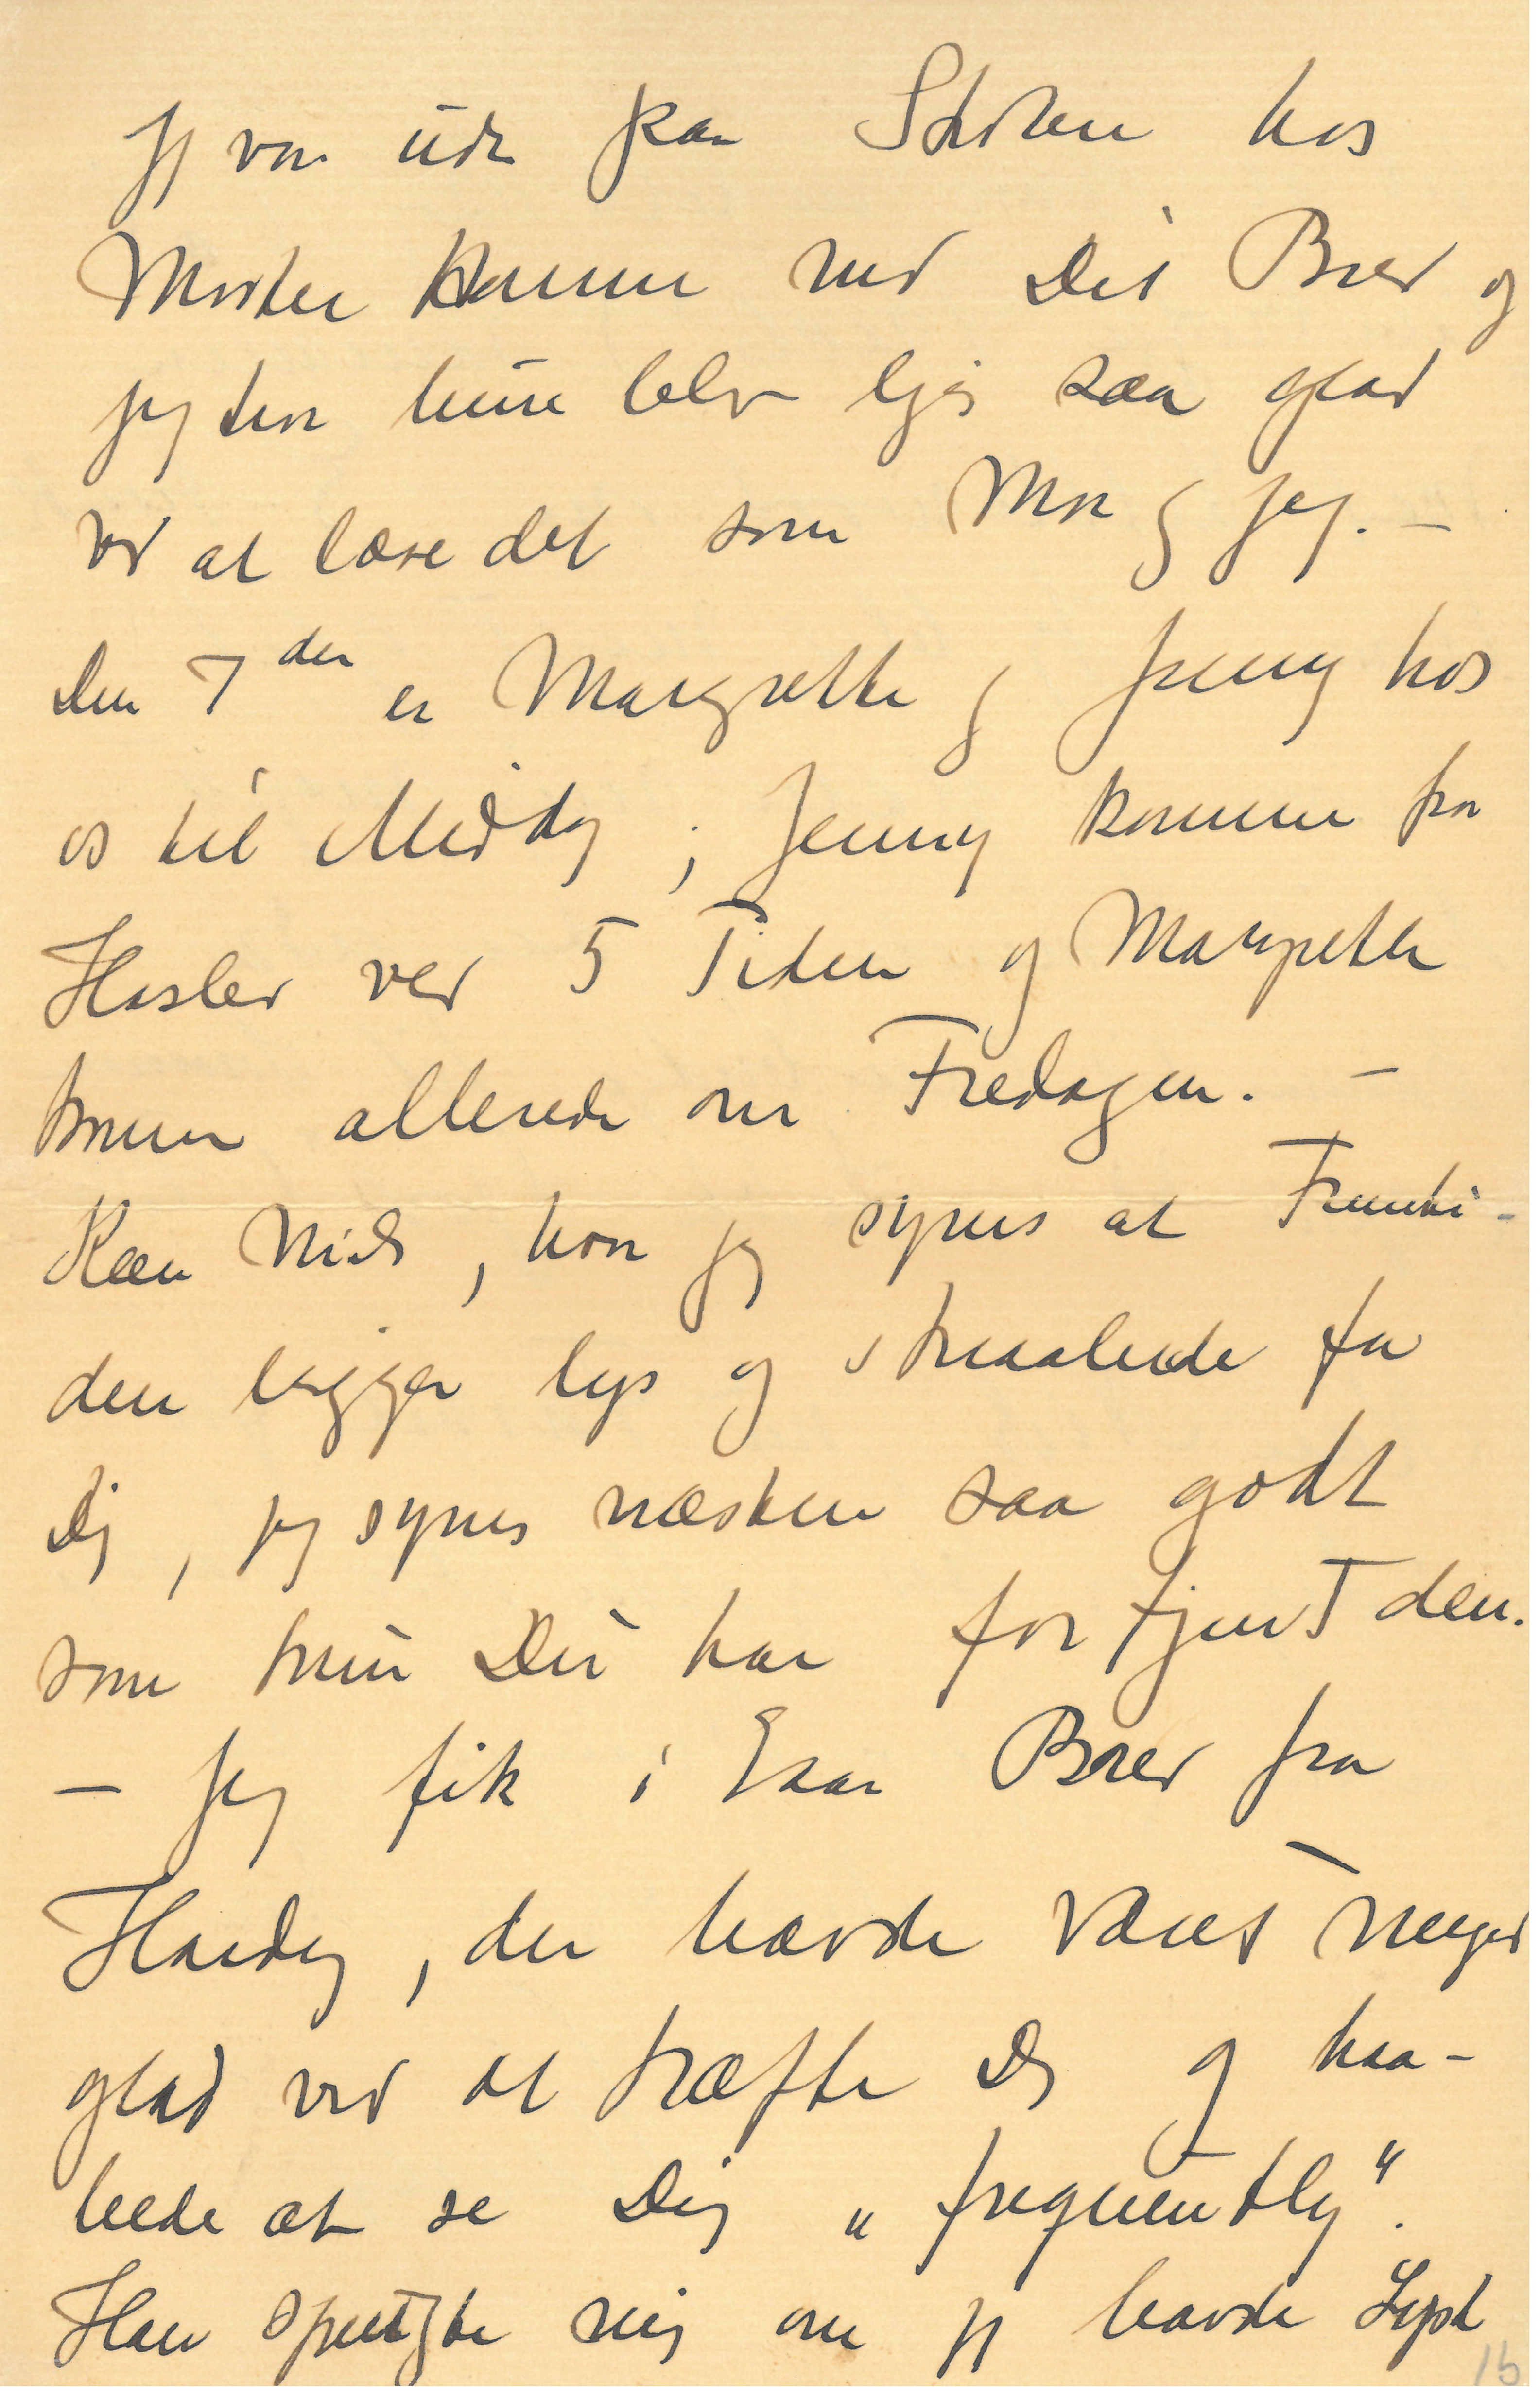 Jeg var ude paa Skolen hos
Moster Hanne med Dit Brev og
jeg tror hun blev lige saa glad
ved at læse det som Mor og jeg. –
Den 7 den er Margrethe og Jenny hos
os til Middag ; Jenny kommer fra
Haslev ved 5 Tiden og Margrethe
kommer allerede om Fredagen. –
Kære Niels , hvor jeg synes at Fremti-
den ligger lys og straalende for
Dig , jeg synes næsten saa godt
som kun Du har fortjent den.
– Jeg fik i Gaar Brev fra
Hardy , der havde været meget
glad ved at træffe Dig og haa-
bede at se Dig „ frequently “.
Han spurgte mig om jeg havde Lyst
15